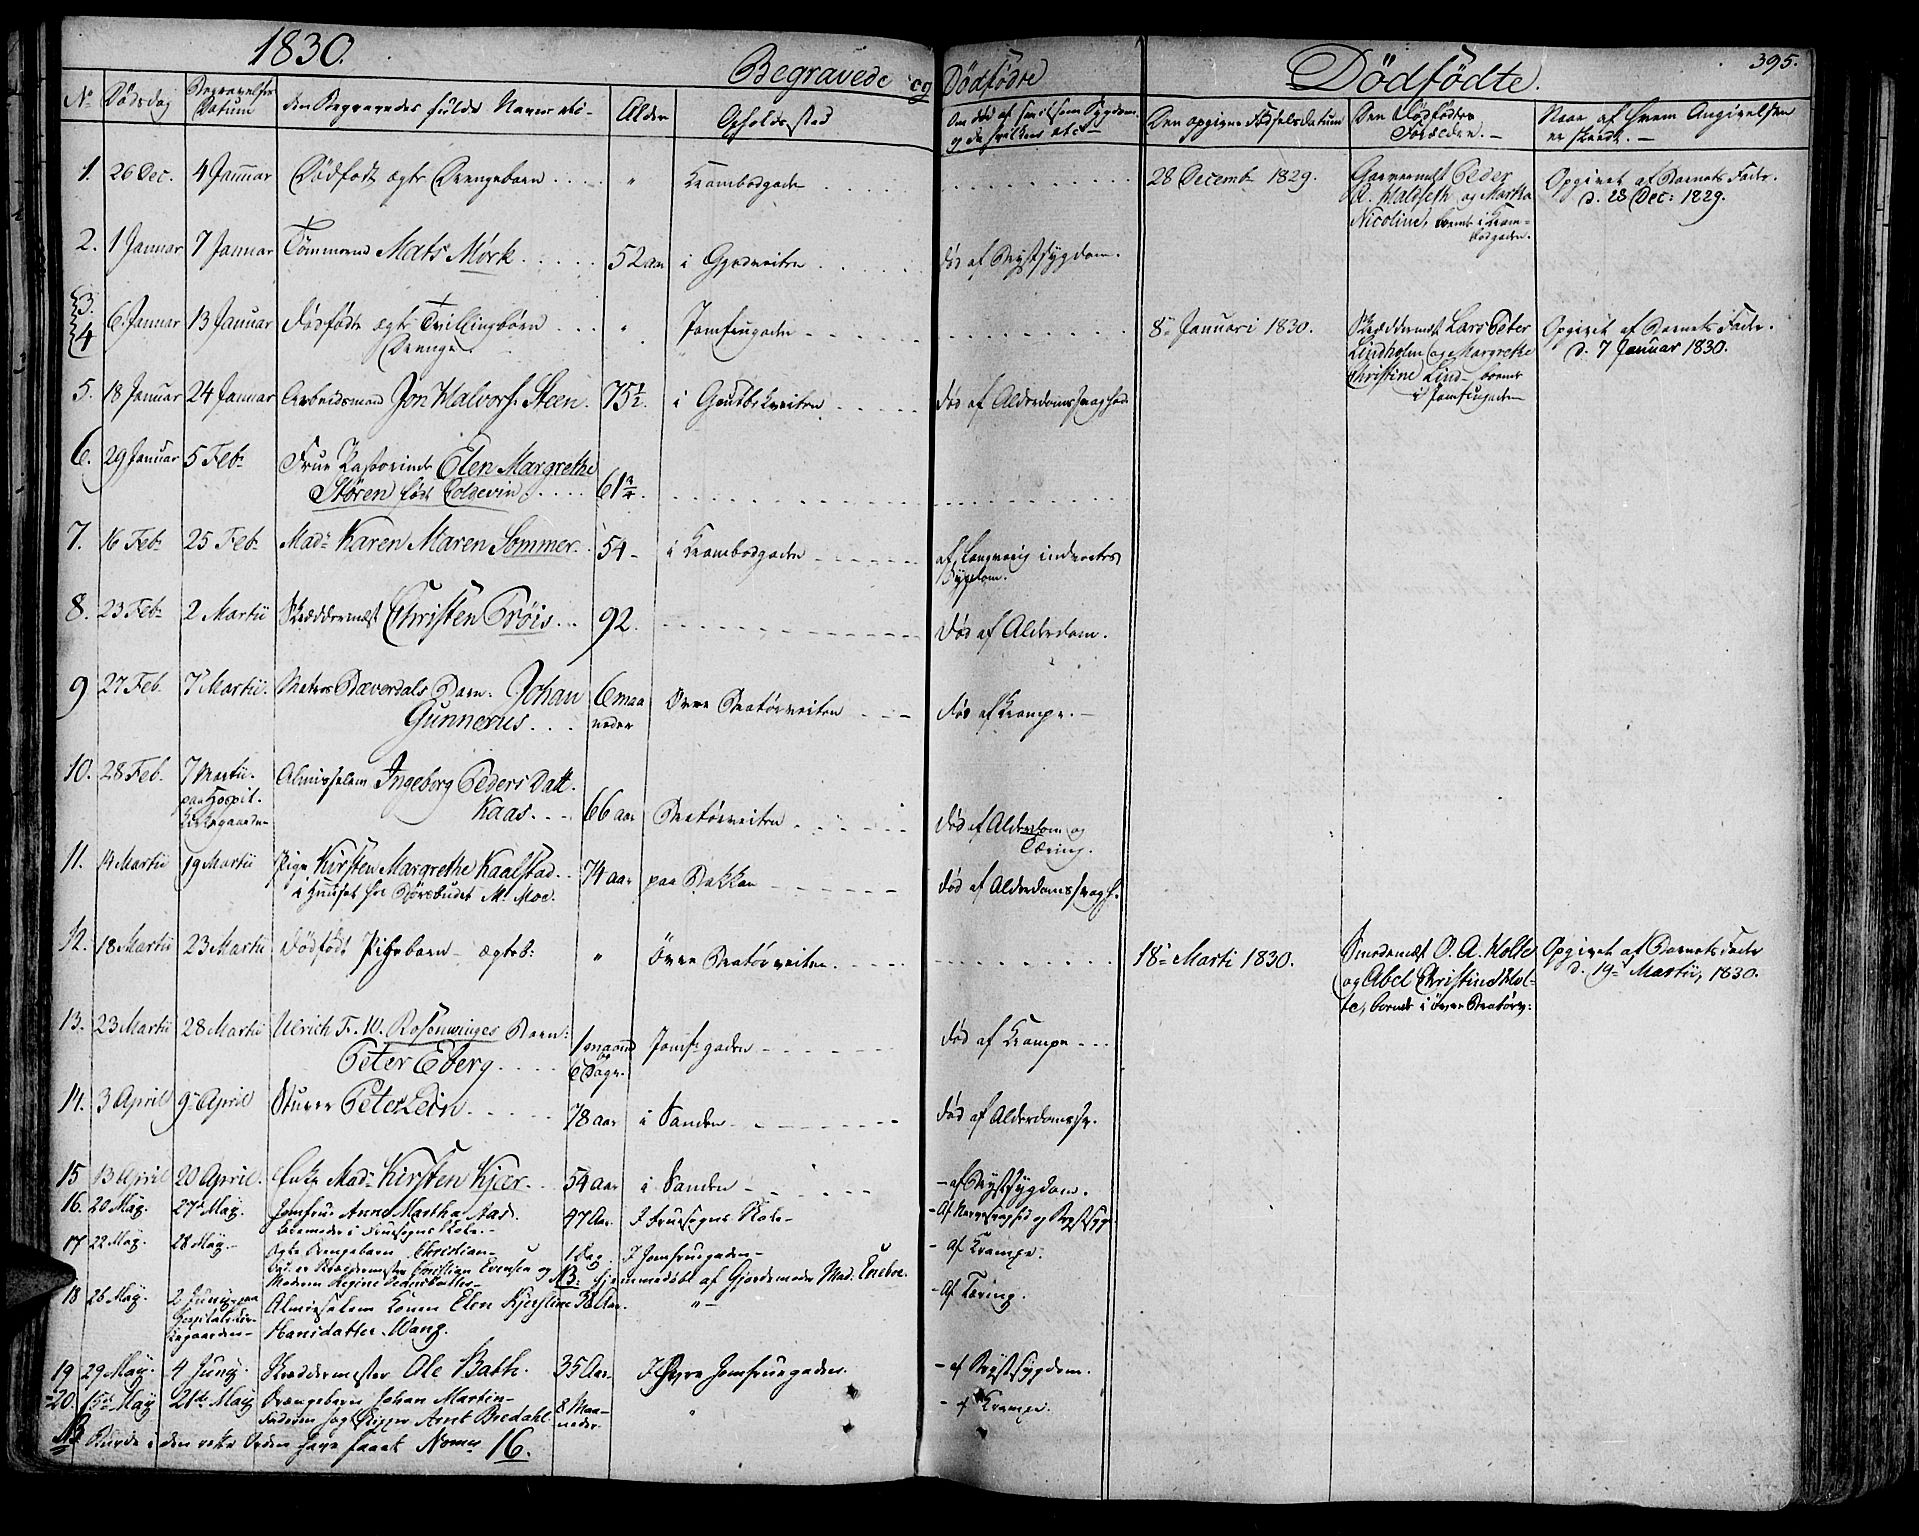 1830.
Begravede og Dødfødte
Dødfødte.
395.
No Dødsdag Begravelses Datum den Begravedes fulde Navn Alder Opholdssted
Den opgivne Fødselsdatum Den Dødfødtes Forældre. Naar og af hvem Angivelsen er skeedt.
1. 26 Dec. 4 Januar Dødfødt ægte Drengebarn " Krambodgaden 28 Decemb 1829. Garvermest Peder Opgivet af Barnets Fader.
Waldseth og Martha d. 28 Dec: 1829.
Nicoline, boende i Kram-
bodgaden.
2. 1 Januar 7 Januar Tømmermd Mats Mørk 52 aar i død af Brystsygdom.
3.
4 6 Januar 13 Januar Dødfødte ægte Tvillingbørn Jomfrugaden 8de Januari 1830. Skræddermest Lars Peter Opgivet af Barnets Fader.
Drenge. Lindholm og Margrethe d. 7 Januar 1830.
Christine Lind boende
i Jomfrugaden
5. 18 Januar 24 Januar Arbeidsmand Jon Halvors. Steen. 75½. i død af Alderdomssvaghed
6. 29 Januar 5 Feb. Frue Pastorinde Elen Margrethe
Støren født Coldevin 61¾.
7. 16 Feb. 25 Feb. Mad. Karen Maren Sommer. 54 i Krambodgaden af Langvarig indvortes
Sygdom.
8. 23 Feb. 2 Martii Skræddermest Christen Trøis 92. død af Alderdom.
9 27 Feb. 7 Martii. Matros Barn: Johan 6 maa Øvre Bratørveiten død af Krampe.
Gunnerus neder
10. 28 Feb. 7 Martii. Almisselem Ingeborg Peders Datt.
paa Hospit. Kaas 66 aar Bratørveiten død af Alderdom og
Kirkegaarden Tæring.
11. 14 Martii 19 Martii Pige Kirsten Margrethe Kaalstad 74 aar paa Bakken død af Alderdomssvagh.
i Huuset hos M. Moe.
12. 18 Martii 23 Martii Dødfødt Pigebarn ægteb: " Øvre Bratørveiten 18de Marti 1830. Smedemest O. A. Holte Opgivet af Barnets Fader
og Abel Christine Hol- d. 19 Martii, 1830.
te, boende i øvre Bratørv:
13. 23 Martii 28 Martii Ulrich F. W. Rosenvinges Barn: 1 maaned Jomf. gaden død af Krampe
Peter Eberg og 6 Dage.
14. 3 April 9 April Peter Lein 78 aar i Sanden død af Alderdomssv.
15 13 April 20 April. Enke Mad. Kirsten Kjær 54 aar i Sanden af Brystsygdom.
16. 20 May. 27 May. Jomfru Anne Martha Aas. 47 Aar. I Fruesogns Skole Af Nervesvaghed og Brystsyge
17 22 May. 28 May. Ægte Drengebarn Christian 1 Dag I Jomfruegaden Af Krampe.
Christian Evensen og NB: hjemmedøbt af Gjordemoder Mad: Eneboe.
Moderen Regine Pedersdatter
18 26 May. 2 Juny paa Almisselem Konen Elen Kjerstine 38 Aar. " Af Tæring.
Hospitalskir- Hansdatter Wang.
kegaarden
19 29 May. 4 Juny. Skræddermester Ole Bath 35 Aar I Øvre Jomfruegaden. af Brystsygdom.
20. 15 May 21de May Drengebarn Johan Martin 8 Maa- " af Krampe.
Faderen Skipper Arnt Bredahl. neder
NB Burde i den rette Orden have faaet Nomer 16.